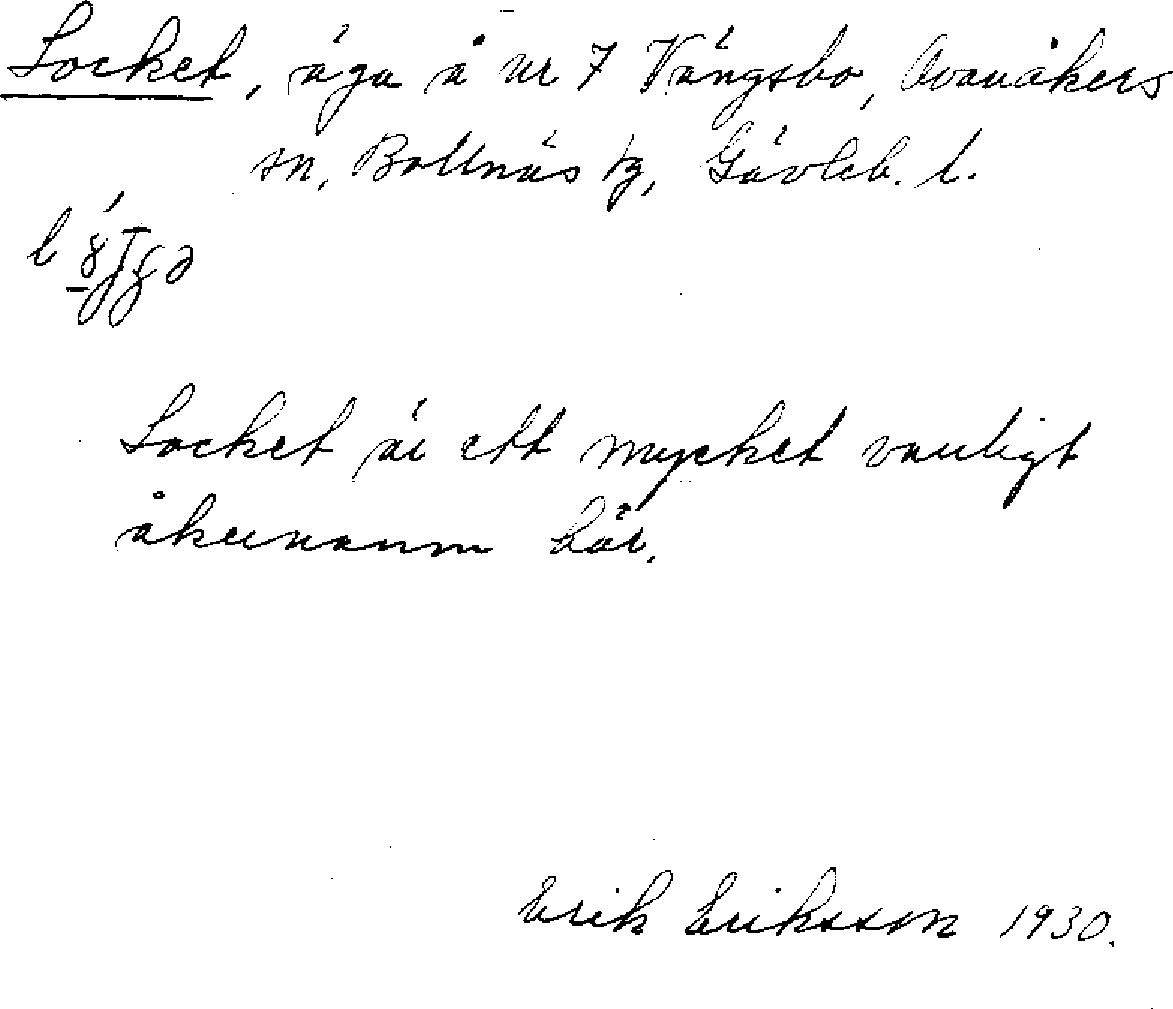 Locket, äga å nr 7 Vängsbo, Ovanåkers
sn, Bollnäs tg, Gävleb. l.
Locket är ett mycket vanligt
åkernamn här.
Erik Eriksson 1930.